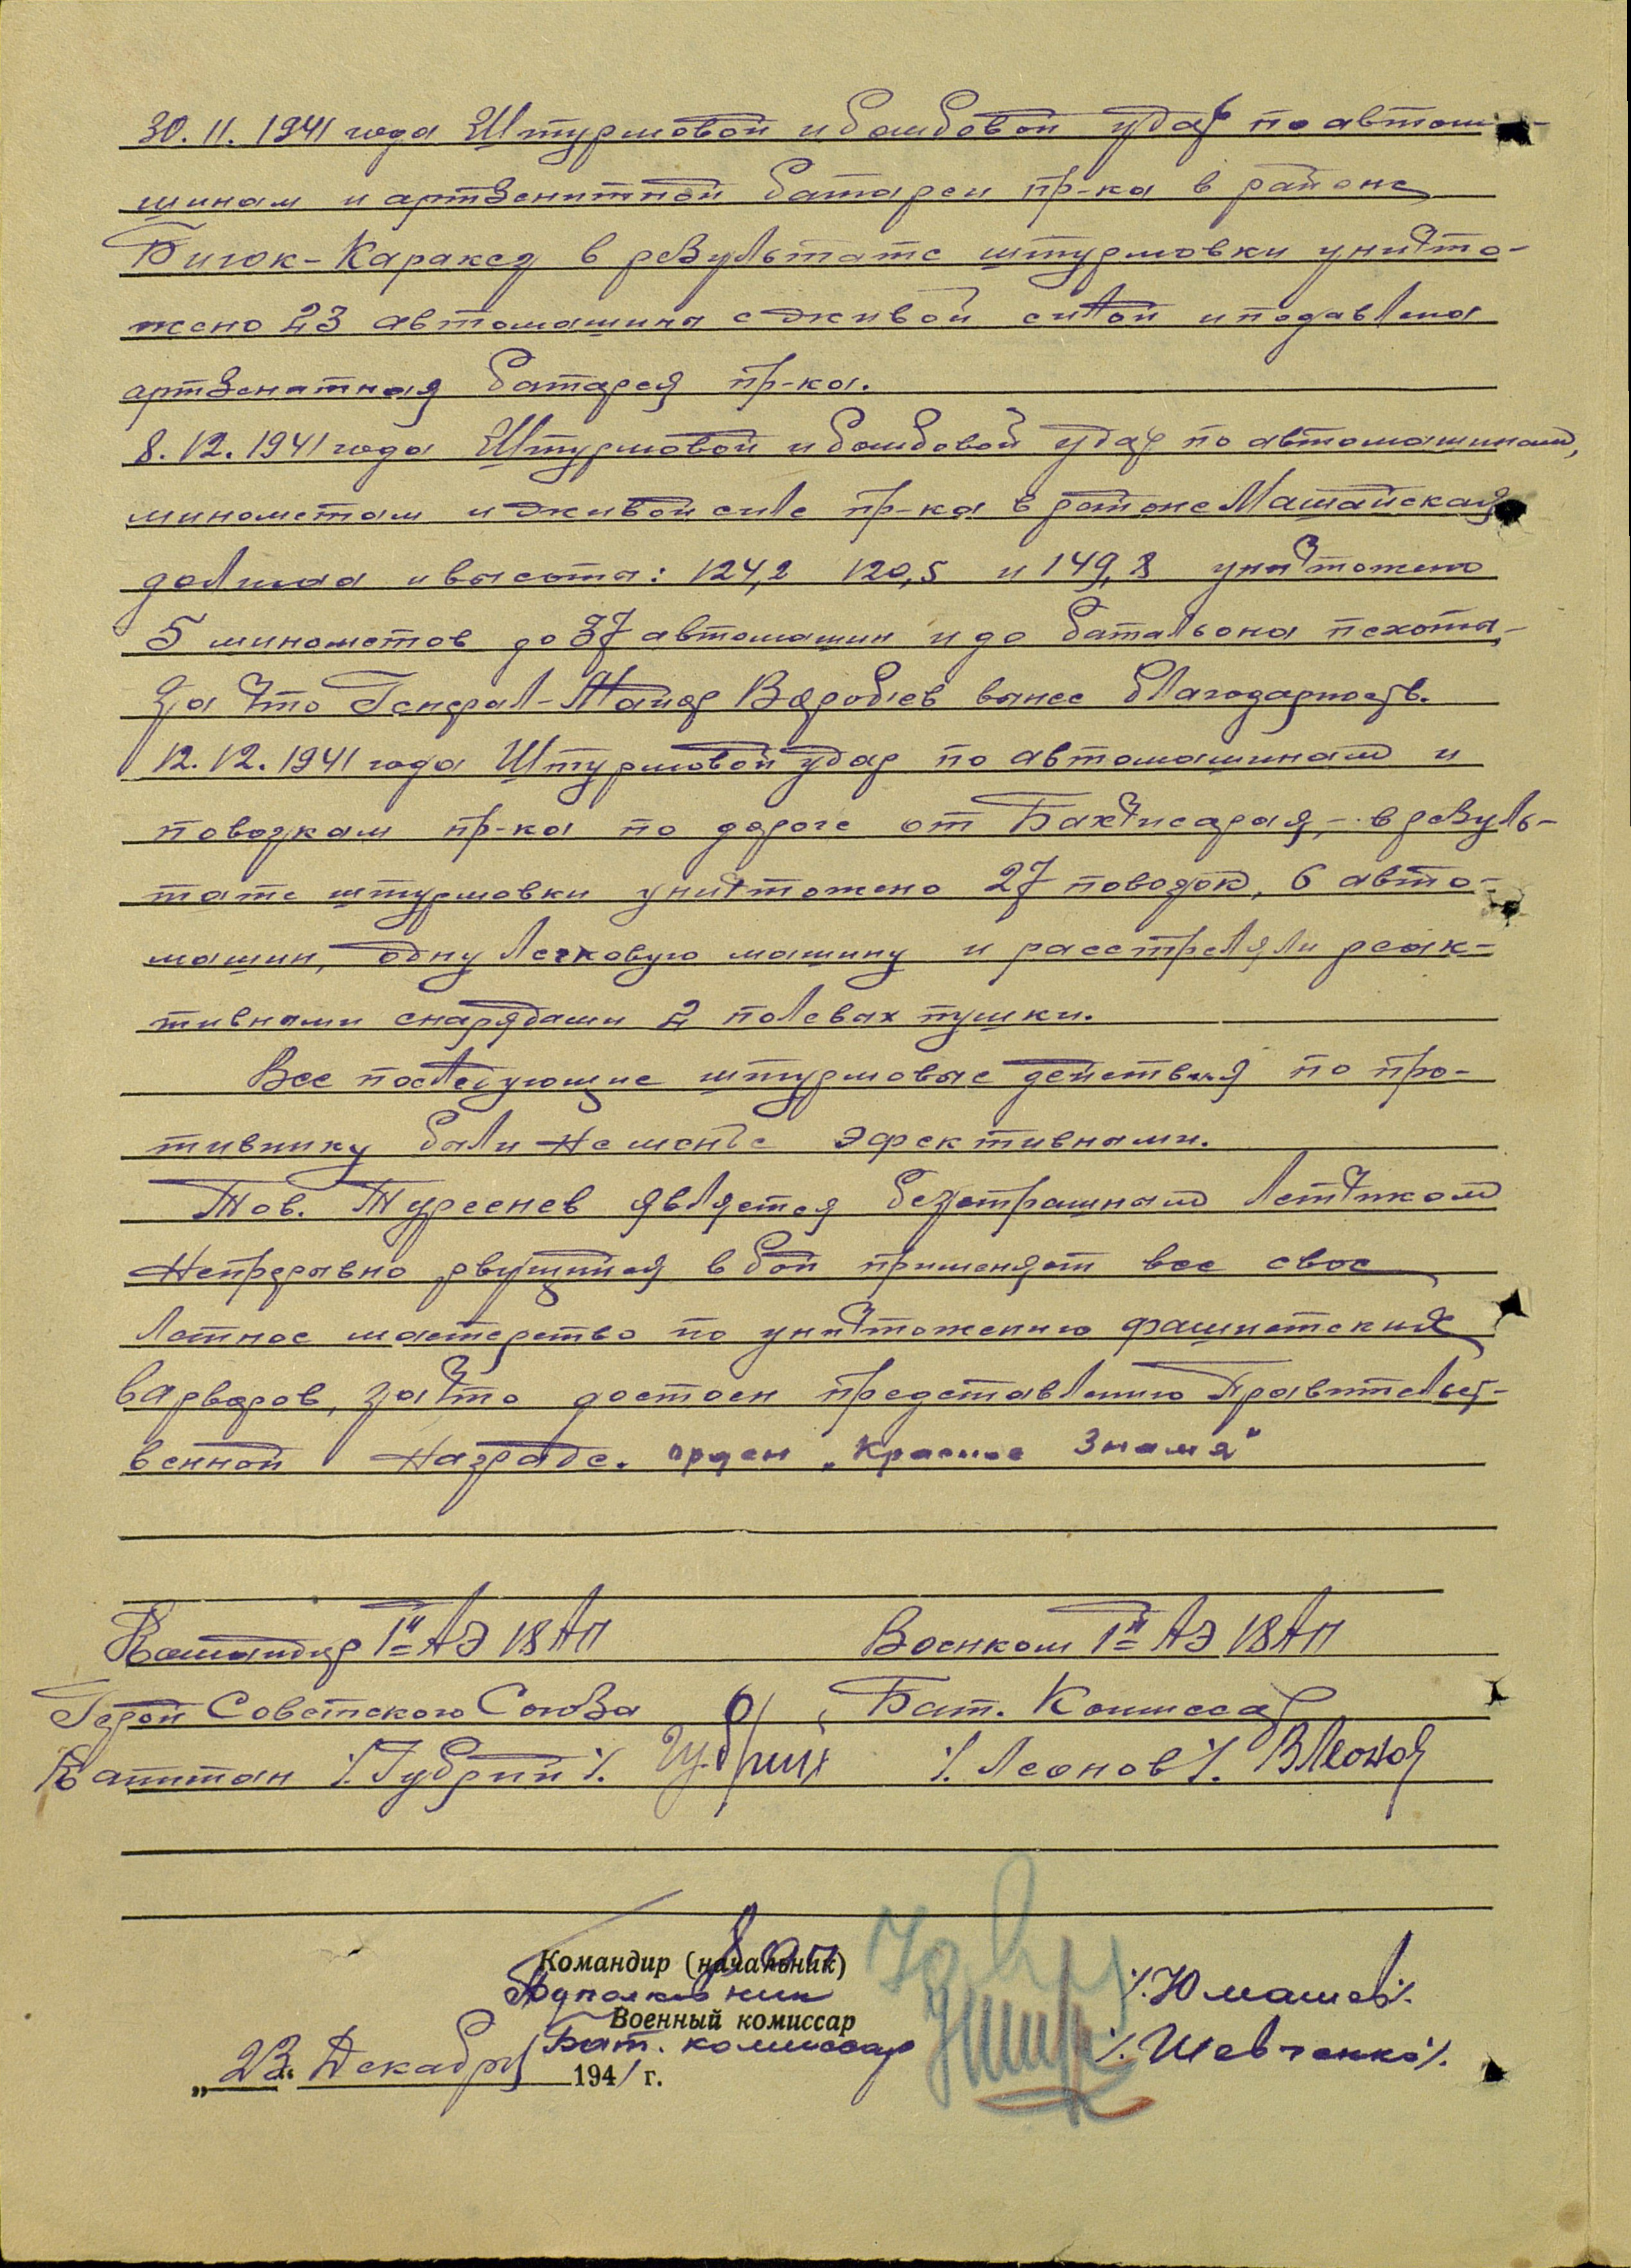 30. 11. 1941 года Штурмовой и бомбовой удар по автома-
шинам и артзенитной батареи пр-ка в районе
Биюк-Каракез в результате штурмовки уничто-
жено 23 автомашины с живой силой и подавлена
артзенитная батарея пр-ка.
8. 12. 1941 года Штурмовой и бомбовой удар по автомашинам,
минометам и живой силе пр-ка в районе Машайская
долина и высоты: 124,2 120,5 и 149,8 уничтожено
5 минометов до 37 автомашин и до батальона пехоты,-
за что Генерал-Майор Воробьев вынес благодарность.
12. 12. 1941 года Штурмовой удар по автомашинам и
повозкам пр-ка по дороге от Бахчисарая,- в резуль-
тате штурмовки уничтожено 27 повозок, 6 авто-
машин, одну легковую машину и расстреляли реак-
тивными снарядами 2 полевых пушки.
Все последующие штурмовые действия по про-
тивнику были не менее эфективными.
Тов. Тургенев является безстрашным летчиком
Непрерывно рвущийся в бой применяет все свое
летное мастерство по уничтожению фашистских
варваров, за что достоен представлению Правительст-
венной Награде. орден „Красное Знамя"
Командир 1й АЭ 18 АП
Военком 1й АЭ 18 АП
Герой Советского Союза
Бат. Комиссар
Капитан /.Губрий/. Губрий
/.Леонов/. ВЛеонов
Командир (начальник)
Подполковник /.Юмашев/.
Военный комиссар
Бат. комиссар /.Шевченко/.
„23" Декабря 1941 г.